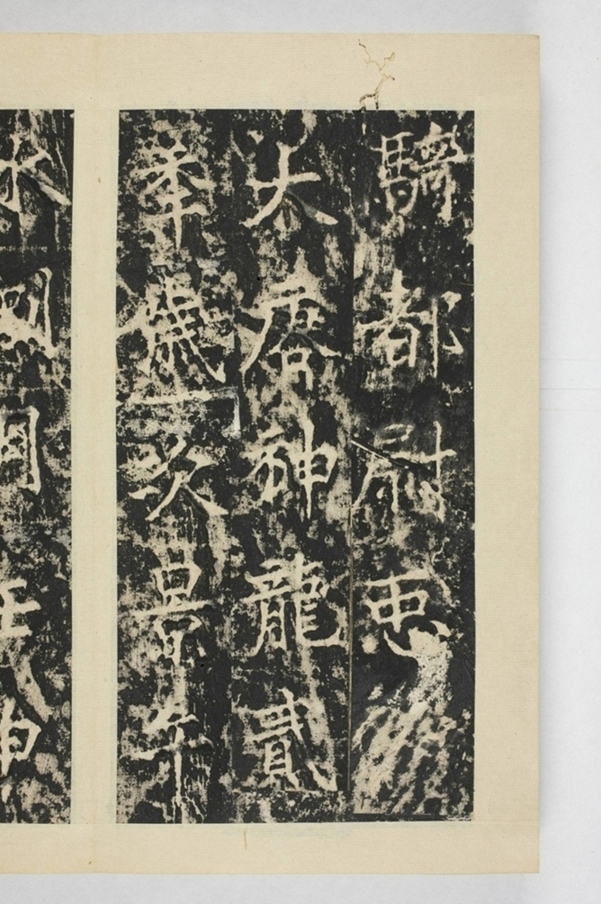 騎都尉
大唐神龍貳
年歲次景午
水
月